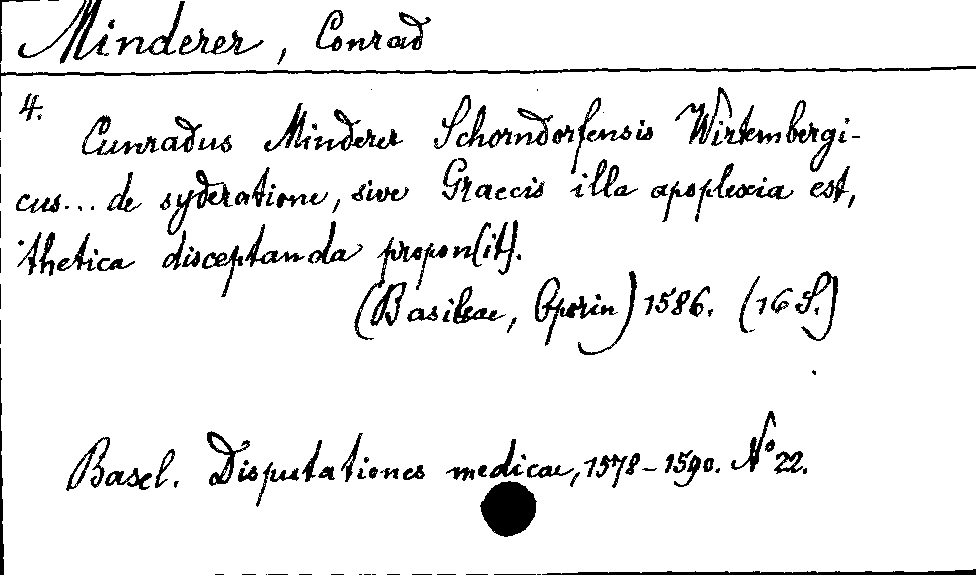 Minderer, Conrad
4.
Cunradus Minderer Schorndorfensis Wirtembergi-
cus... de syderatione, sive Graecis illa apoplexia est,
thetica disceptanda propon[it].
(Basileae, Oporin) 1586. (16 S.)
Basel. Disputationes medicae, 1578-1590. N° 22.